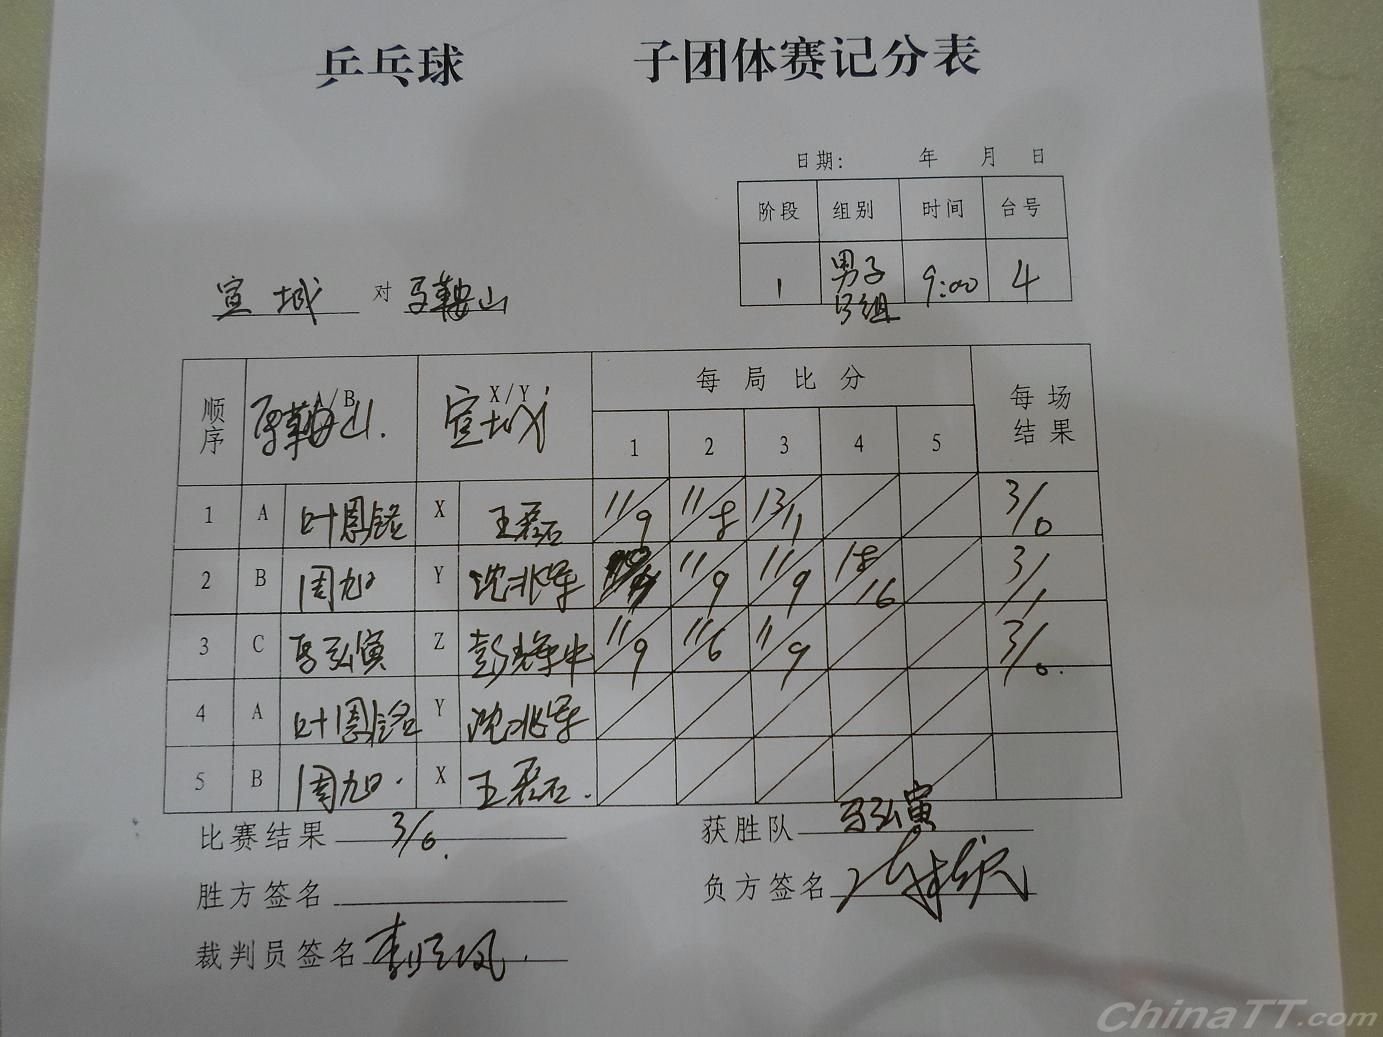 乒乓球 子团体赛记分表
日期: 年 月 日
阶段 组别 时间 台号
1 男子 9:00 4
宣城 对 马鞍山
顺序 A/B 马鞍山. X/Y 宣城 每局比分 每场结果
1 2 3 4 5
1 A 叶恩铭 X 王磊石 11/9 11/8 13/11 3/0
2 B 周旭 Y 沈兆军 11/9 11/9 18/16 3/1
3 C 马弘寅 Z 11/9 11/6 11/9 3/0.
4 A 叶恩铭 Y 沈兆军
5 B 周旭. X 王磊石.
比赛结果 3/0.
获胜队 马弘寅
胜方签名
负方签名
裁判员签名
ChinaTT.com